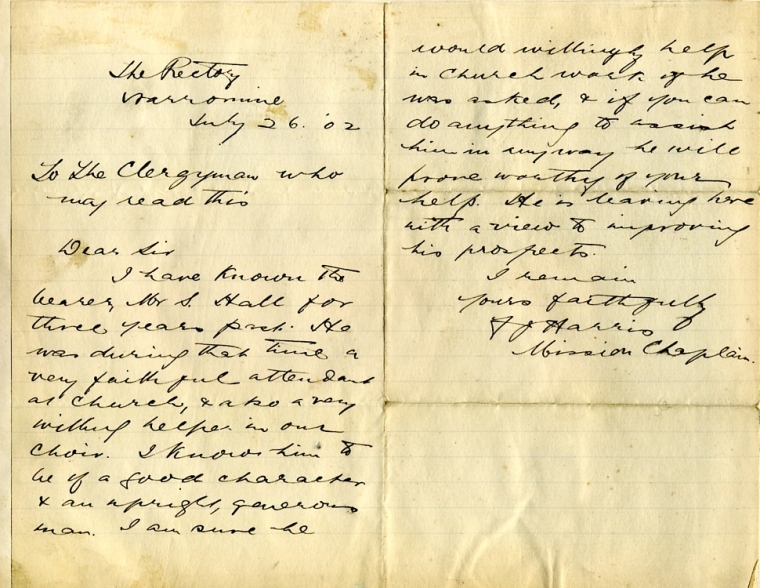 The Rectory
Narromine
July 26. '02
To The Clergyman who
may read this
Dear Sir
I have Known the
bearer, Mr S. Hall for
three years past. He
was during that time a
very faithful attendant
at Church, & also a very
willing helper in our
Choir. I know him to
be of a good character
& an upright, generous
man. I am sure he
would willingly help
in Church work if he
was asked, & if you can
do anything to assist
him in anyway he will
prove worthy of your
help. He is leaving here
with a view to improving
his prospects.
I remain
yours faithfully
Harris
Mission Chaplain.